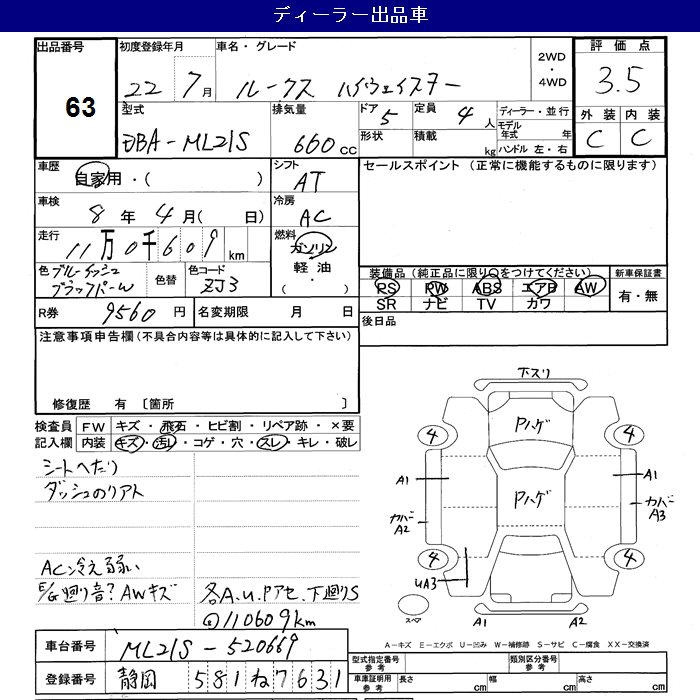 ディーラー出品車
出品番号 63
初度登録年月 22 7月
車名・グレード ルークス ハイウェイスター
2WD・4WD
評価点 3.5
外装 C 内装 C
型式 DBA-ML21S
排気量 660cc
ドア 5 形状
定員 4人 積載 kg
ディーラー・並行
モデル年式 年
ハンドル 左・右
車歴 自家用・( )
シフト AT
セールスポイント (正常に機能するものに限ります)
車検 8年4月( 日)
冷房 AC
走行 11万0千609km
燃料 ガソリン 軽油・( )
色 ブルーイッシュブラックパールW
色替
色コード ZJ3
装備品(純正品に限り○をつけてください)
PS PW ABS エアB AW
SR ナビ TV カワ
新車保証書 有・無
R券 9560円
名変期限 月 日
後日品
注意事項申告欄(不具合内容等は具体的に記入して下さい)
修復歴 有〔箇所 〕
検査員記入欄
FW キズ・飛石・ヒビ割・リペア跡・×要
内装 キズ・汚レ・コゲ・穴・スレ・キレ・破レ
シートへたり
ダッシュのリアト
AC冷え弱い
E/G廻り音? AWキズ
各A.U.Pアセ.下廻りS
@110609km
下スリ
Pハゲ
4 4
A1 A1
Pハゲ
カバーA2 カバーA3
4 4
UA3
スペア
A1 A2
A-キズ E-エクボ U-凹み W-補修跡 S-サビ C-腐食 XX-交換済
車台番号 ML21S-520669
登録番号 静岡 581ね7631
型式指定番号 参考
類別区分番号 参考
車庫証明用 参考 長さ cm 幅 cm 高さ cm